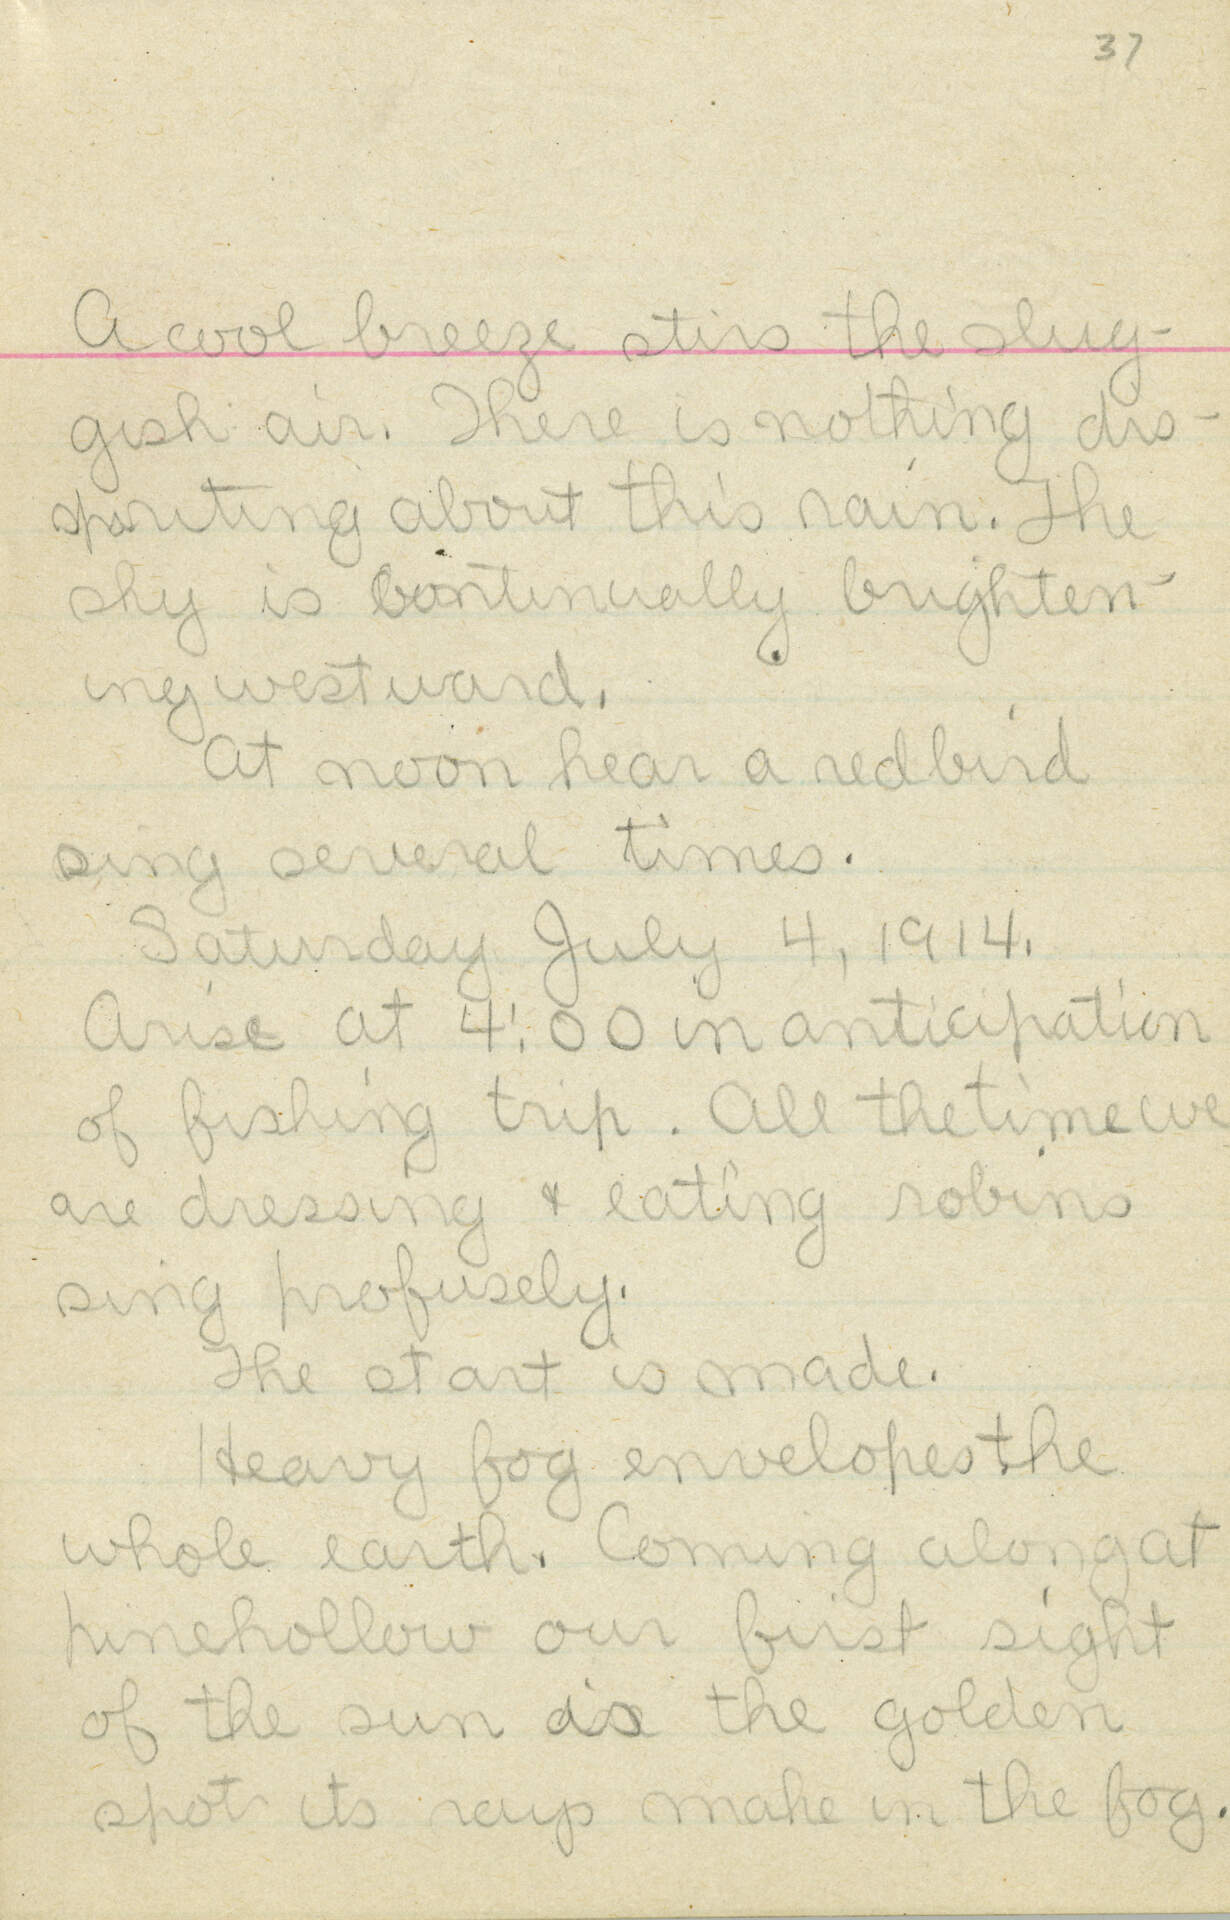 37
A cool breeze stirs the slug-
gish air. There is nothing dis-
spiriting about this rain. The
sky is continually brighten-
ing westward.
At noon hear a redbird
sing several times.
Saturday July 4, 1914.
Arise at 4:00 in anticipation
of fishing trip. All the time we
are dressing & eating robins
sing profusely.
The start is made.
Heavy fog envelopes the
whole earth. Coming along at
pinehollow our first sight
of the sun is the golden
spot its rays make in the fog.